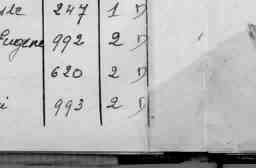 247 1 D
Eugene 992 2 D
620 2 D
i 993 2 D